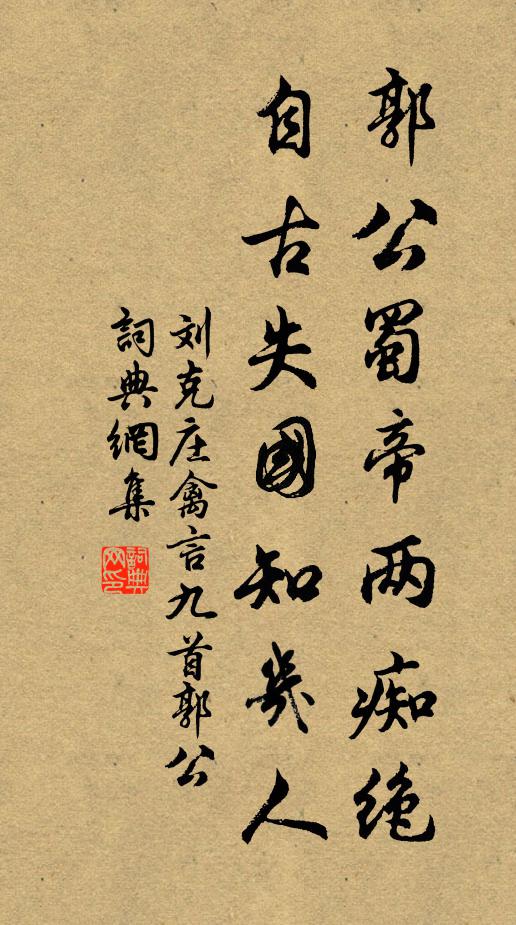 郭公蜀帝两痴绝
自古失國知幾人
刘克庄禽言九首郭公
詞典網集
詞典网印